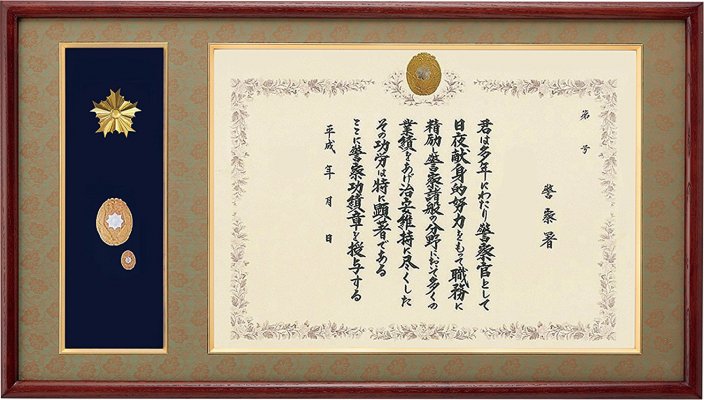 第　号
警察署
君は多年にわたり警察官として
日夜献身的努力をもって職務に
精励し警察諸般の分野において多くの
業績をあげ治安維持に尽くした
その功労は特に顕著である
ここに警察功績章を授与する
平成　年　月　日